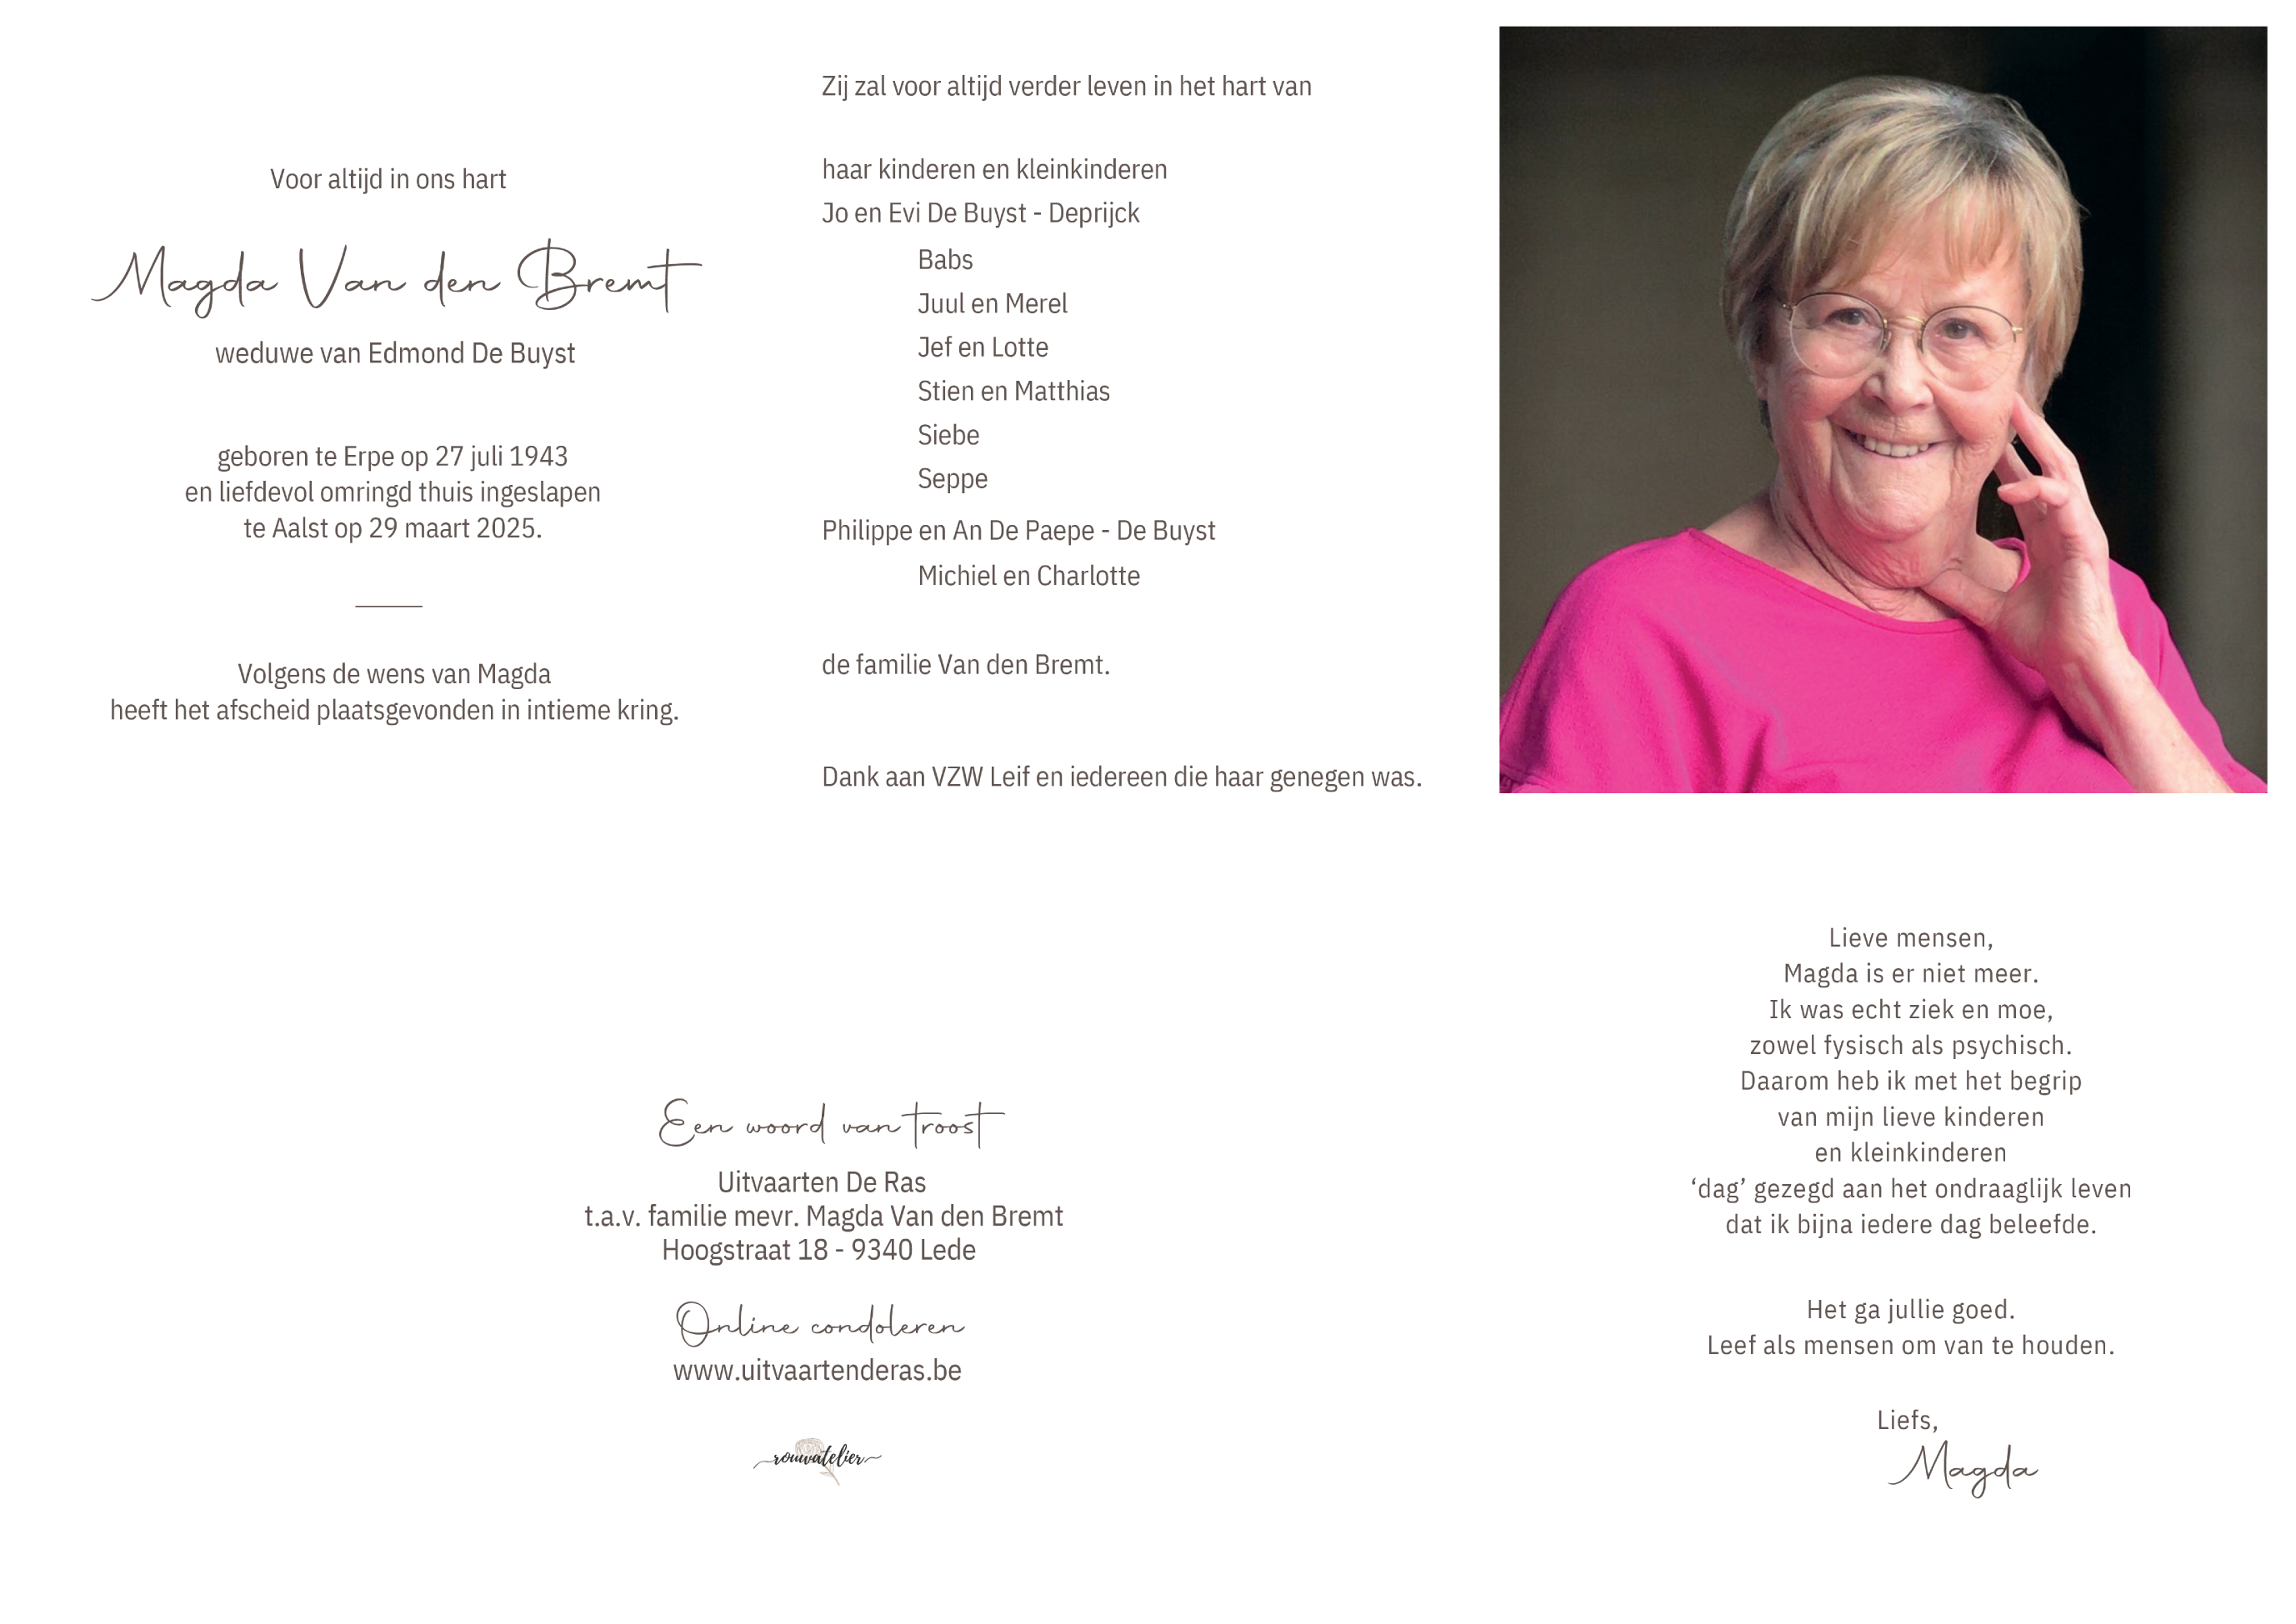 Voor altijd in ons hart
Magda Van den Bremt
weduwe van Edmond De Buyst
geboren te Erpe op 27 juli 1943
en liefdevol omringd thuis ingeslapen
te Aalst op 29 maart 2025.
Volgens de wens van Magda
heeft het afscheid plaatsgevonden in intieme kring.
Zij zal voor altijd verder leven in het hart van
haar kinderen en kleinkinderen
Jo en Evi De Buyst - Deprijck
Babs
Juul en Merel
Jef en Lotte
Stien en Matthias
Siebe
Seppe
Philippe en An De Paepe - De Buyst
Michiel en Charlotte
de familie Van den Bremt.
Dank aan VZW Leif en iedereen die haar genegen was.
Een woord van troost
Uitvaarten De Ras
t.a.v. familie mevr. Magda Van den Bremt
Hoogstraat 18 - 9340 Lede
Online condoleren
www.uitvaartenderas.be
rouwatelier
Lieve mensen,
Magda is er niet meer.
Ik was echt ziek en moe,
zowel fysisch als psychisch.
Daarom heb ik met het begrip
van mijn lieve kinderen
en kleinkinderen
‘dag’ gezegd aan het ondraaglijk leven
dat ik bijna iedere dag beleefde.
Het ga jullie goed.
Leef als mensen om van te houden.
Liefs,
Magda